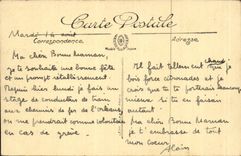 Carte Postale
Mardi 14 août
Correspondance
Adresse
Ma chère Bonne Maman,
Je te souhaite une bonne fête
et un prompt rétablissement.
Depuis hier lundi je fais un
stage de conduites de train
aux chemins de fer de l'orléans
on me prendrait comme volontaire
en cas de grève
Il fait tellement chaud que je
bois force citronades et je
crois que tu te porterais beaucoup
mieux si tu en faisais
autant.
Ma chère Bonne Maman
je t'embrasse de tout
mon cœur
Alain